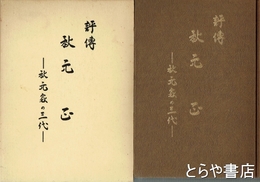 評傳
秋元正
―秋元家の三代―
評傳
秋元正
―秋元家の三代―
とらや書店